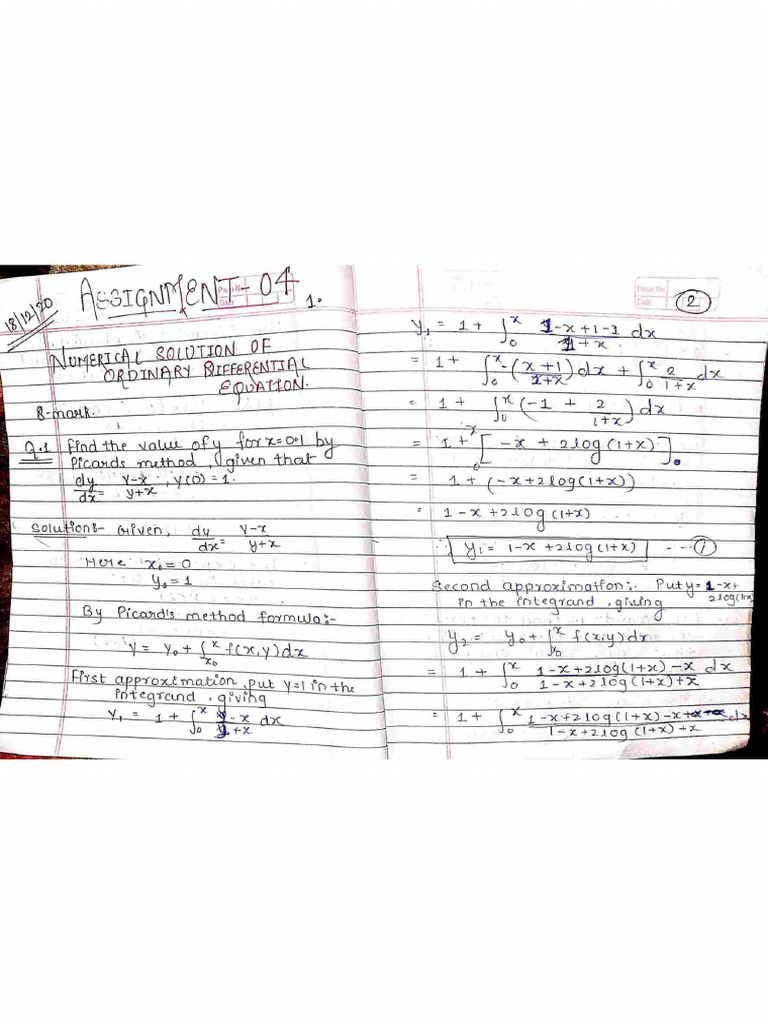 18/12/20
ASSIGNMENT-04
1.
NUMERICAL SOLUTION OF
ORDINARY DIFFERENTIAL
EQUATION.
8-mark.
Q.1 Find the value of y for x=0.1 by
Picards method, given that
dy/dx = y-x/y+x, y(0)=1.
Solution:- Given, dy/dx = y-x/y+x
Here x₀=0
y₀=1
By Picard's method formula:-
y = y₀ + ∫_{x₀}^{x} f(x,y)dx
First approximation, put y=1 in the
integrand, giving
y₁ = 1 + ∫_0^x 1-x/1+x dx
Page No.
Date
2
y₁ = 1 + ∫_0^x 1-x+1-1/1+x dx
= 1 + ∫_0^x -(x+1)/1+x dx + ∫_0^x 2/1+x dx
= 1 + ∫_0^x (-1 + 2/1+x) dx
= 1 + [-x + 2log(1+x)]_0^x
= 1 + (-x+2log(1+x))
= 1-x+2log(1+x)
∴ y₁ = 1-x+2log(1+x) --- (i)
Second approximation:- Put y= 1-x+
2log(1+x)
in the integrand, giving
y₂ = y₀ + ∫_{x₀}^{x} f(x,y)dx
= 1 + ∫_0^x 1-x+2log(1+x)-x/1-x+2log(1+x)+x dx
= 1 + ∫_0^x 1-x+2log(1+x)-x/1-x+2log(1+x)+x dx